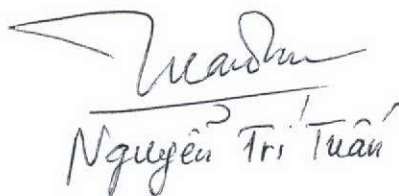 Nguyễn Trí Tuấn